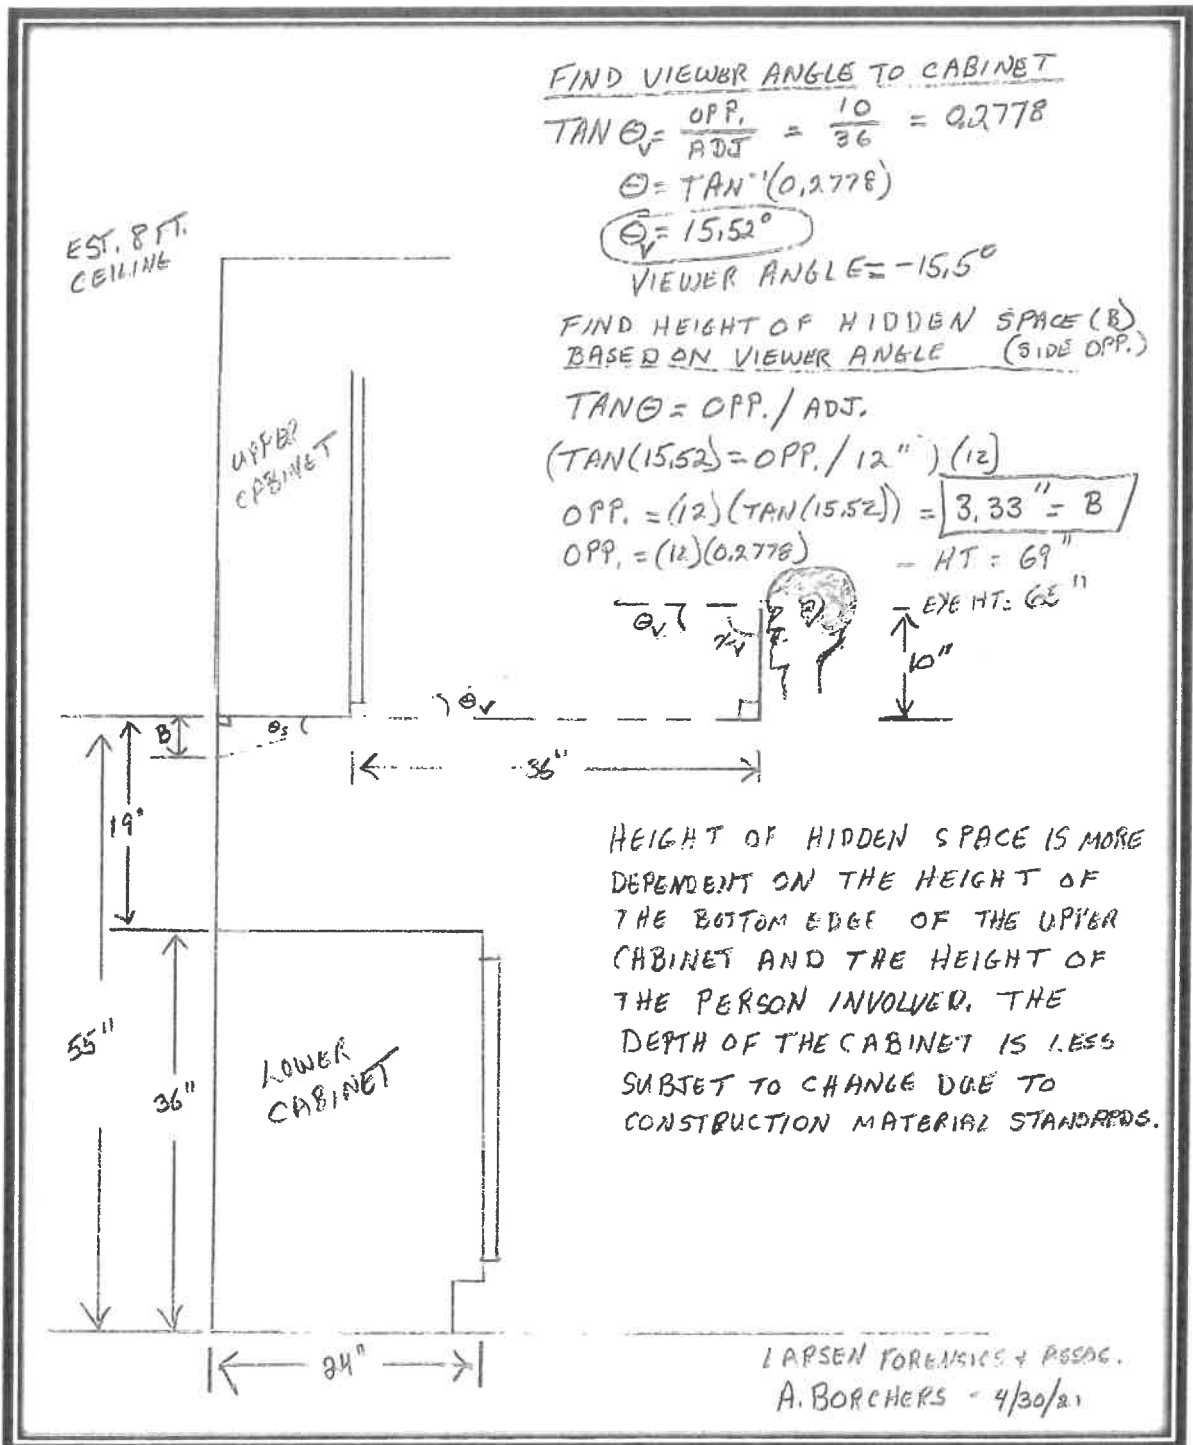 FIND VIEWER ANGLE TO CABINET
TAN Θv = OPP. / ADJ = 10 / 36 = 0.2778
Θ = TAN⁻¹(0.2778)
Θv = 15.52°
VIEWER ANGLE = -15.5°
EST. 8 FT.
CEILING
FIND HEIGHT OF HIDDEN SPACE (B)
BASED ON VIEWER ANGLE (SIDE OPP.)
TANΘ = OPP. / ADJ.
(TAN(15.52) = OPP. / 12") (12)
OPP. = (12)(TAN(15.52)) = 3.33" = B
OPP. = (12)(0.2778)
UPPER
CABINET
HT: 69"
EYE HT: 65"
Θv
10"
Θv
B
Θs
36"
19"
HEIGHT OF HIDDEN SPACE IS MORE
DEPENDENT ON THE HEIGHT OF
THE BOTTOM EDGE OF THE UPPER
CABINET AND THE HEIGHT OF
THE PERSON INVOLVED. THE
DEPTH OF THE CABINET IS LESS
SUBJET TO CHANGE DUE TO
CONSTRUCTION MATERIAL STANDARDS.
55"
36"
LOWER
CABINET
24"
LARSEN FORENSICS & ASSOC.
A. BORCHERS - 4/30/21